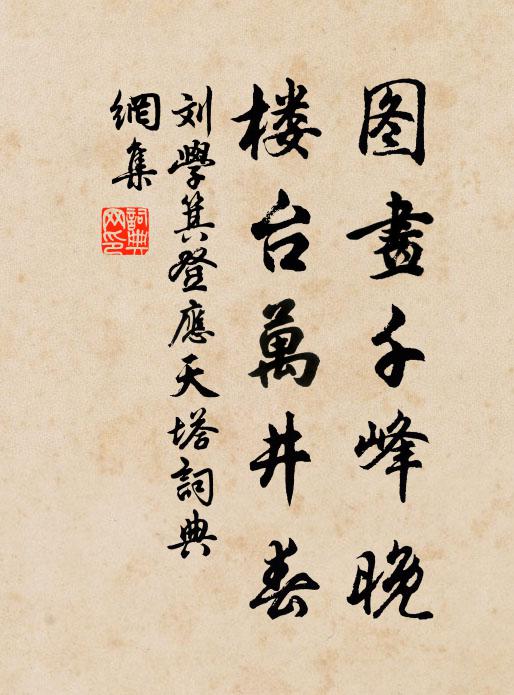 图畫千峰晚
楼台萬井春
刘學箕登應天塔詞典
網集
詞典網印